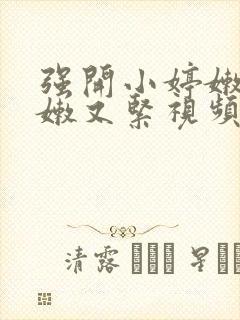 强開小婷嫩
嫩又緊視頻
清露 星